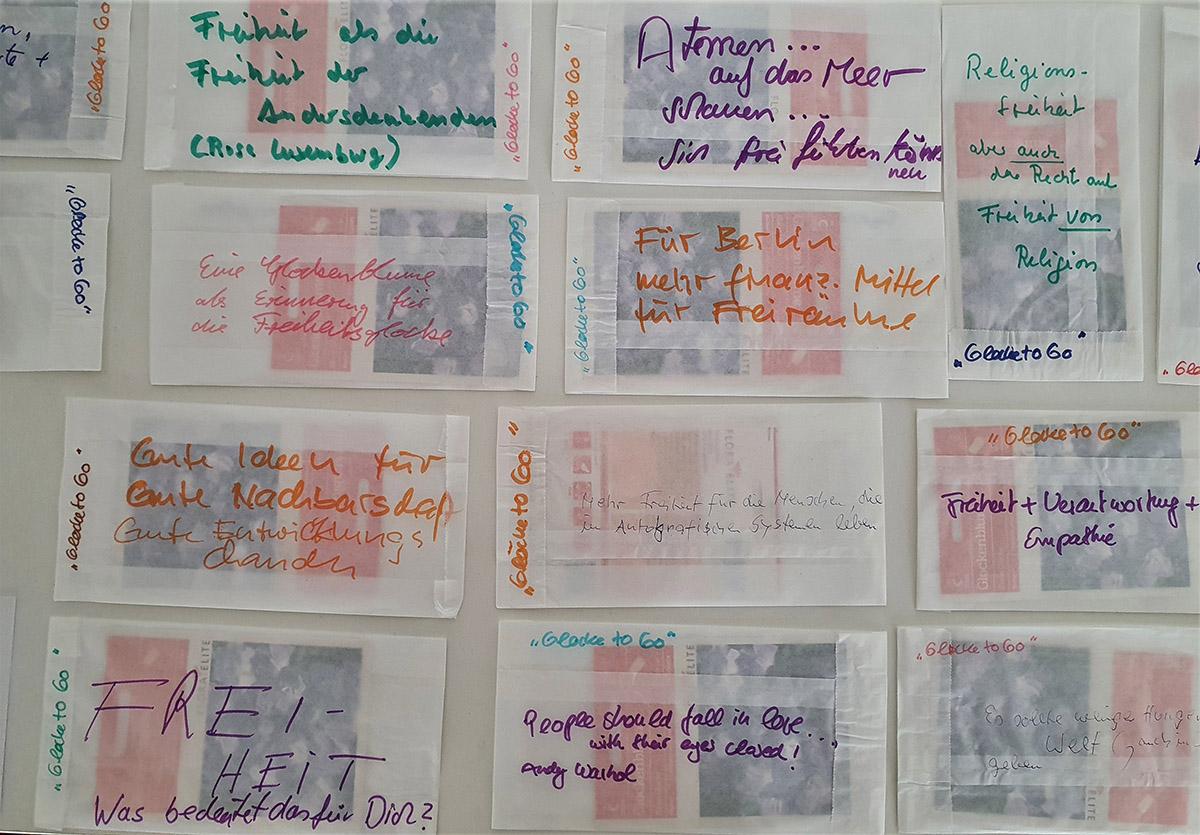 "Glocke to Go"
Freiheit als die
Freiheit der
Andersdenkenden
(Rosa Luxemburg)
"Glocke to Go"
"Glocke to Go"
Atmen...
auf das Meer
schauen...
sich frei fühlen kön
nen
Religions-
freiheit
aber auch
das Recht auf
Freiheit von
Religion
"Glocke to Go"
"Glocke to Go"
Eine Glockenblume
als Erinnerung für
die Freiheitsglocke
"Glocke to Go"
ELITE
"Glocke to Go"
Für Berlin
mehr finanz. Mittel
für Freiräume
"Glocke to Go"
Gute Ideen für
Gute Nachbarschaft
Gute Entwicklungs
chancen
"Glocke to Go"
Mehr Freiheit für die Menschen, die
in Autokratischen Systemen leben
"Glocke to Go"
Freiheit + Verantwortung +
Empathie
Glockenblume
"Glocke to Go"
FREI-
HEIT
Was bedeutet das für Dich?
ELITE
"Glocke to Go"
People should fall in love...
with their eyes closed!
Andy Warhol
ELITE
"Glocke to Go"
Es sollte weniger Hunger
Welt
geben
ELITE